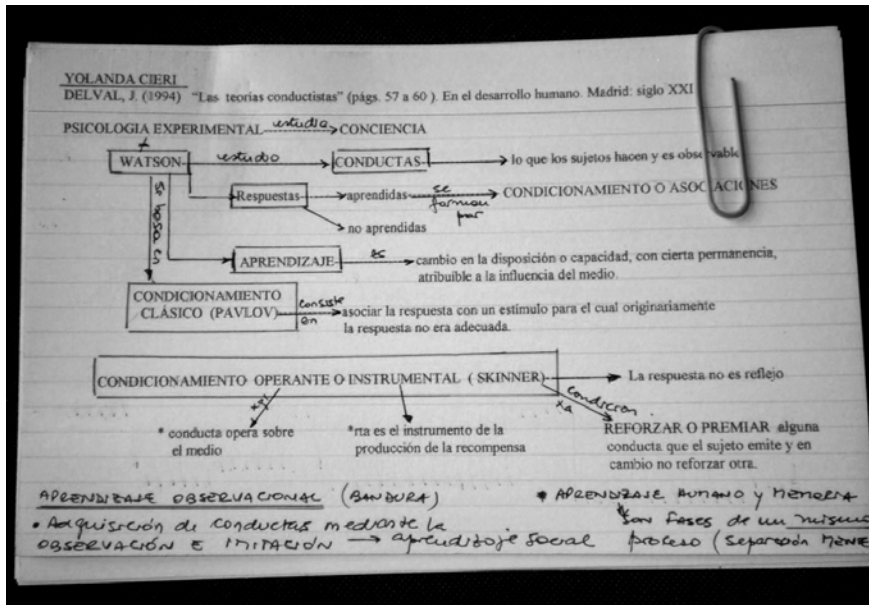 YOLANDA CIERI
DELVAL, J. (1994) "Las teorías conductistas" (págs. 57 a 60 ). En el desarrollo humano. Madrid: siglo XXI
PSICOLOGIA EXPERIMENTAL estudia CONCIENCIA
WATSON estudio CONDUCTAS lo que los sujetos hacen y es observable
se basa en
Respuestas aprendidas se forman por CONDICIONAMIENTO O ASOCIACIONES
no aprendidas
APRENDIZAJE es cambio en la disposición o capacidad, con cierta permanencia,
atribuible a la influencia del medio.
CONDICIONAMIENTO
CLÁSICO (PAVLOV) consiste en asociar la respuesta con un estímulo para el cual originariamente
la respuesta no era adecuada.
CONDICIONAMIENTO OPERANTE O INSTRUMENTAL ( SKINNER) La respuesta no es reflejo
* conducta opera sobre
el medio
*rta es el instrumento de la
producción de la recompensa
REFORZAR O PREMIAR alguna
conducta que el sujeto emite y en
cambio no reforzar otra.
APRENDIZAJE OBSERVACIONAL (BANDURA)
• Adquisición de conductas mediante la
OBSERVACIÓN E IMITACIÓN → aprendizaje social
• APRENDIZAJE HUMANO y MEMORIA
son fases de un mismo
proceso (separación MENE